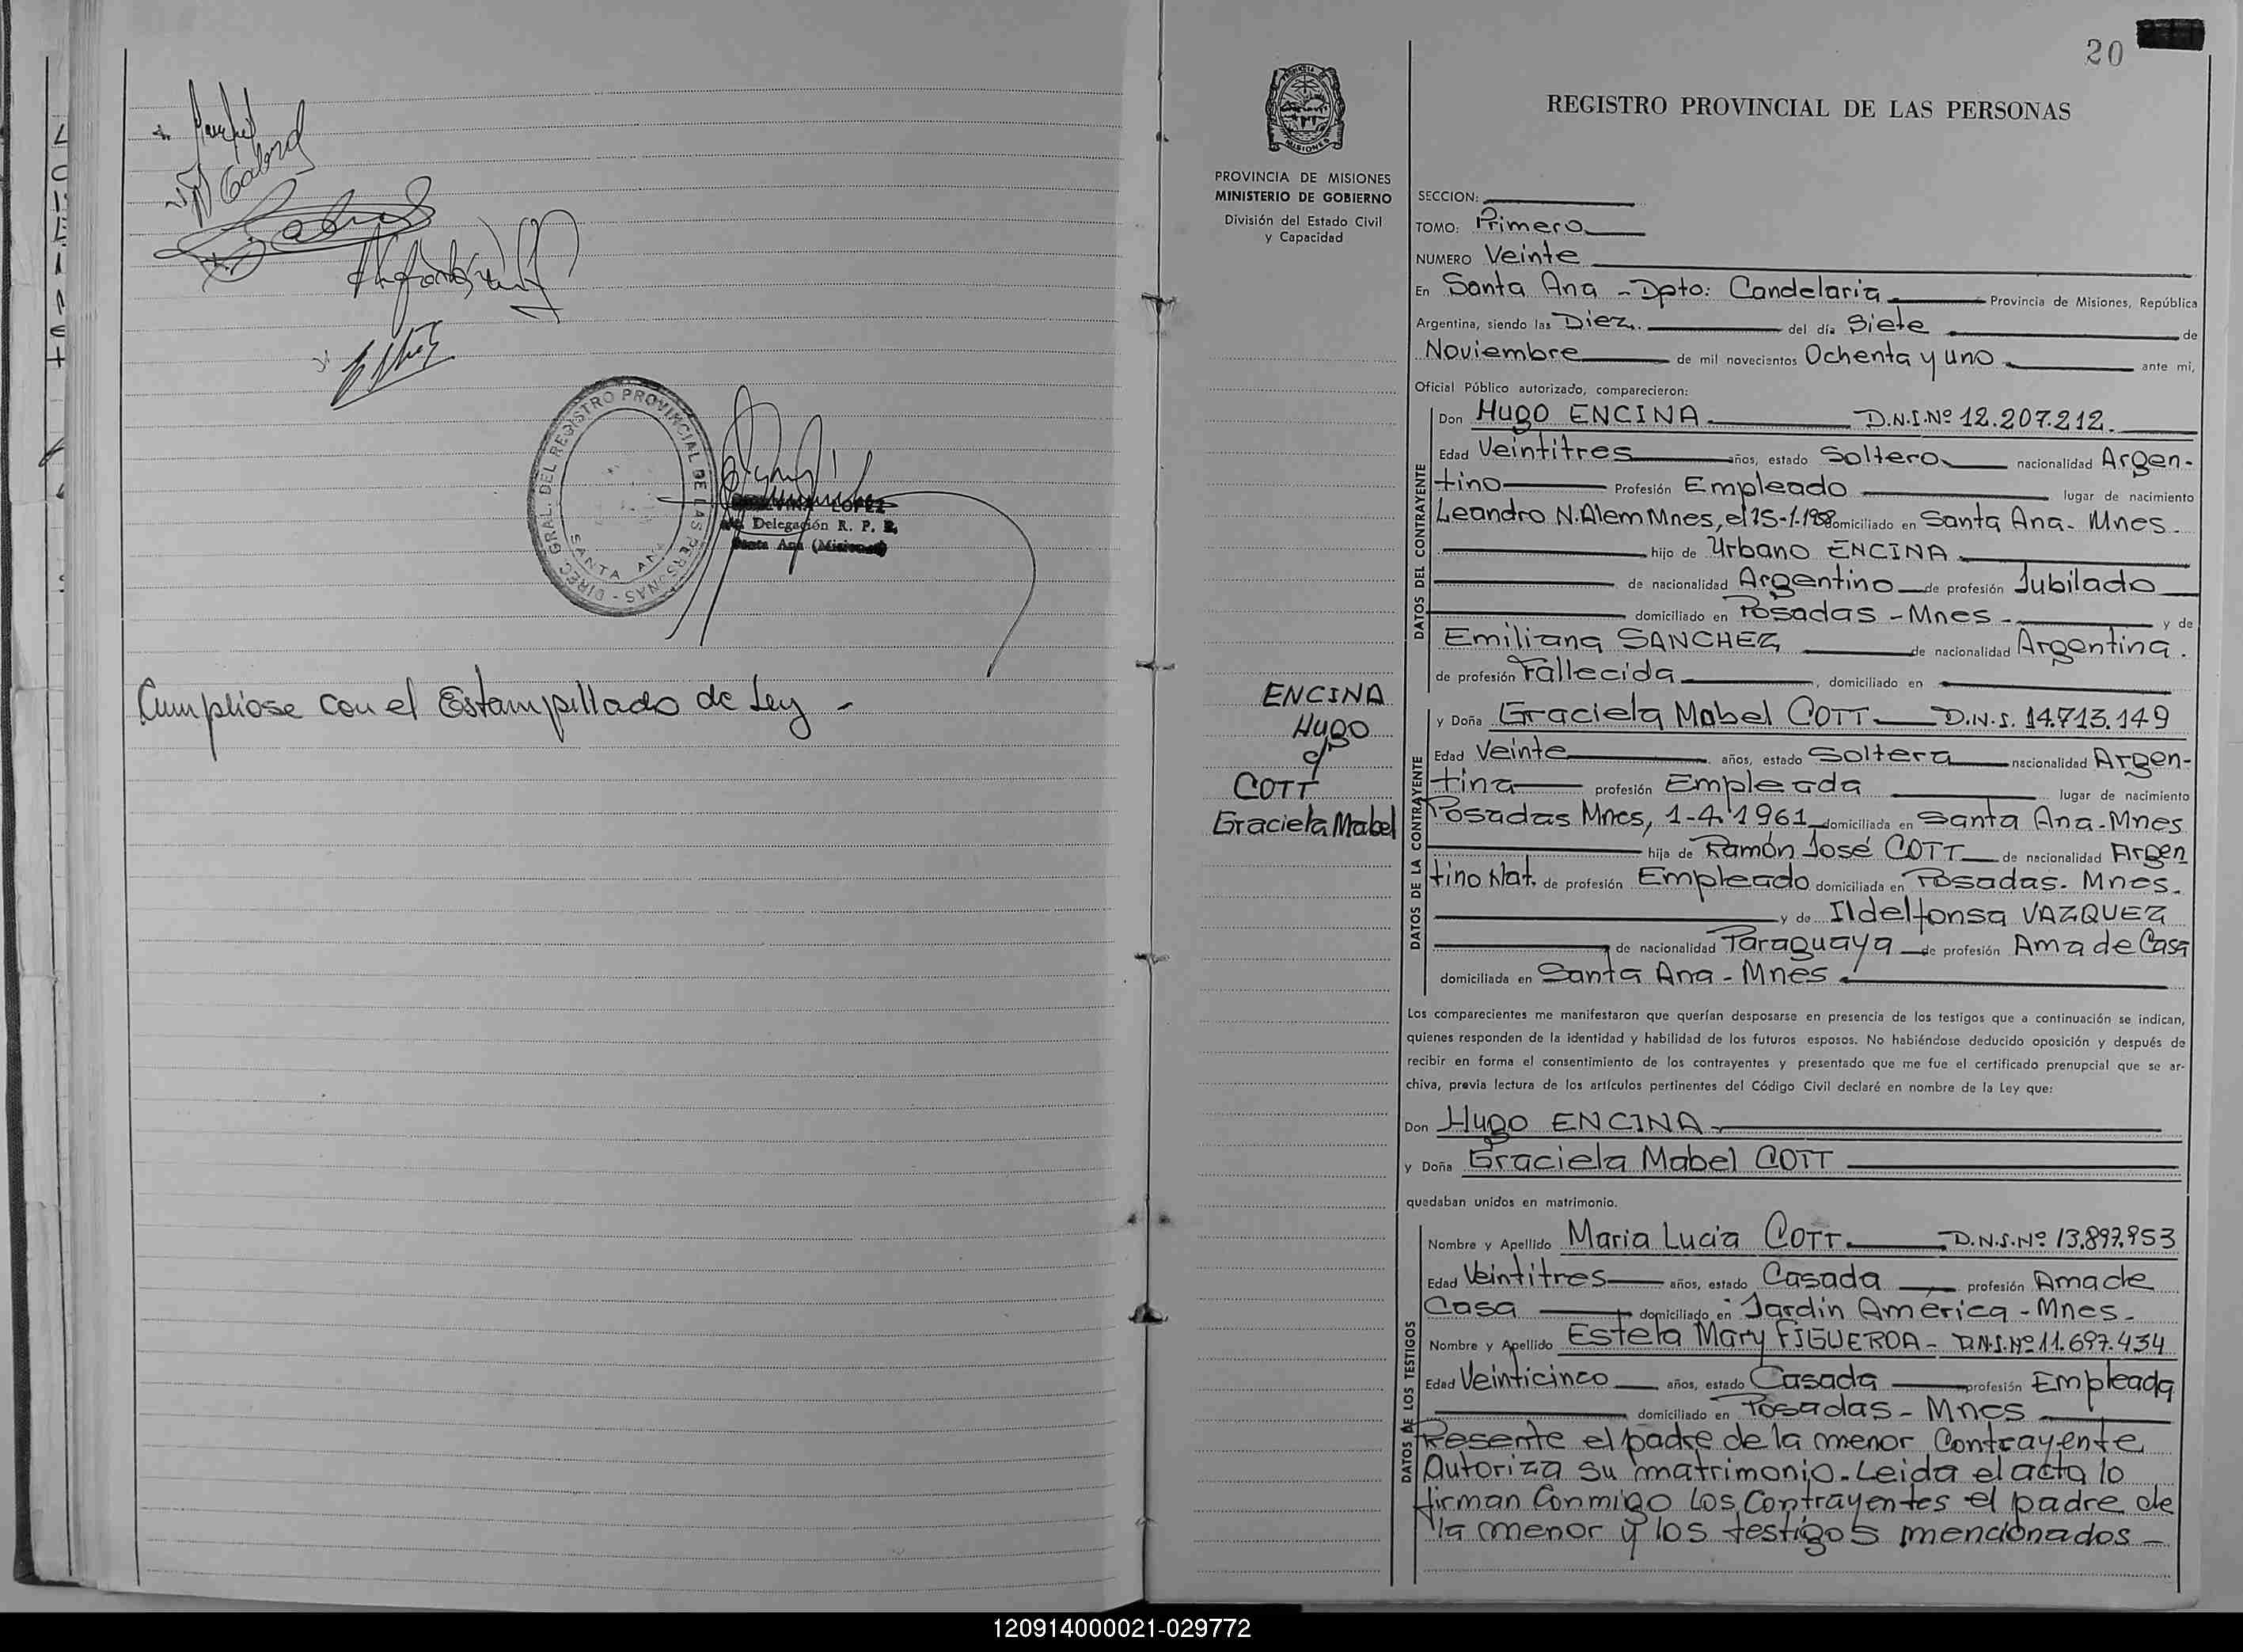 Cumpliose con el Estampillado de Ley -
DIREC. GRAL. DEL REGISTRO PROVINCIAL DE LAS PERSONAS -
SANTA ANA
LOPEZ
Delegación R. P. P.
Santa Ana (Misiones)
20
PROVINCIA DE MISIONES
MINISTERIO DE GOBIERNO
División del Estado Civil
y Capacidad
ENCINA
Hugo
c/
COTT
Graciela Mabel
REGISTRO PROVINCIAL DE LAS PERSONAS
SECCION:
TOMO: Primero
NUMERO Veinte
En Santa Ana - Dpto: Candelaria Provincia de Misiones, República
Argentina, siendo las Diez. del día Siete de
Noviembre de mil novecientos Ochenta y uno ante mi,
Oficial Público autorizado, comparecieron:
DATOS DEL CONTRAYENTE
Don Hugo ENCINA. D.N.I.Nº 12.207.212.
Edad Veintitres años, estado Soltero nacionalidad Argen-
tino Profesión Empleado lugar de nacimiento
Leandro N. Alem Mnes, el 15-1-1958 domiciliado en Santa Ana- Mnes.
hijo de Urbano ENCINA
de nacionalidad Argentino de profesión Jubilado
domiciliado en Posadas - Mnes - y de
Emiliana SANCHEZ de nacionalidad Argentina.
de profesión Fallecida , domiciliado en
DATOS DE LA CONTRAYENTE
y Doña Graciela Mabel COTT D.N.I. 14.713.149
Edad Veinte años, estado Soltera nacionalidad Argen-
tina profesión Empleada lugar de nacimiento
Posadas Mnes, 1-4-1961 domiciliada en Santa Ana-Mnes
hija de Ramón José COTT de nacionalidad Argen
tino Nat. de profesión Empleado domiciliada en Posadas. Mnes.
y de Ildelfonsa VAZQUEZ
de nacionalidad Paraguaya de profesión Ama de Casa
domiciliada en Santa Ana - Mnes.
Los comparecientes me manifestaron que querían desposarse en presencia de los testigos que a continuación se indican,
quienes responden de la identidad y habilidad de los futuros esposos. No habiéndose deducido oposición y después de
recibir en forma el consentimiento de los contrayentes y presentado que me fue el certificado prenupcial que se ar-
chiva, previa lectura de los artículos pertinentes del Código Civil declaré en nombre de la Ley que:
Don Hugo ENCINA
y Doña Graciela Mabel COTT
quedaban unidos en matrimonio.
DATOS DE LOS TESTIGOS
Nombre y Apellido Maria Lucia COTT. D.N.I.Nº 13.897.953
Edad Veintitres años, estado Casada profesión Ama de
Casa domiciliado en Jardín América - Mnes-
Nombre y Apellido Estela Mary FIGUEROA - D.N.I.Nº 11.697.434
Edad Veinticinco años, estado Casada profesión Empleada
domiciliado en Posadas - Mnes
Presente el padre de la menor Contrayente
Autoriza su matrimonio. Leida el acta lo
firman Conmigo Los Contrayentes el padre de
la menor y los testigos mencionados -
120914000021-029772